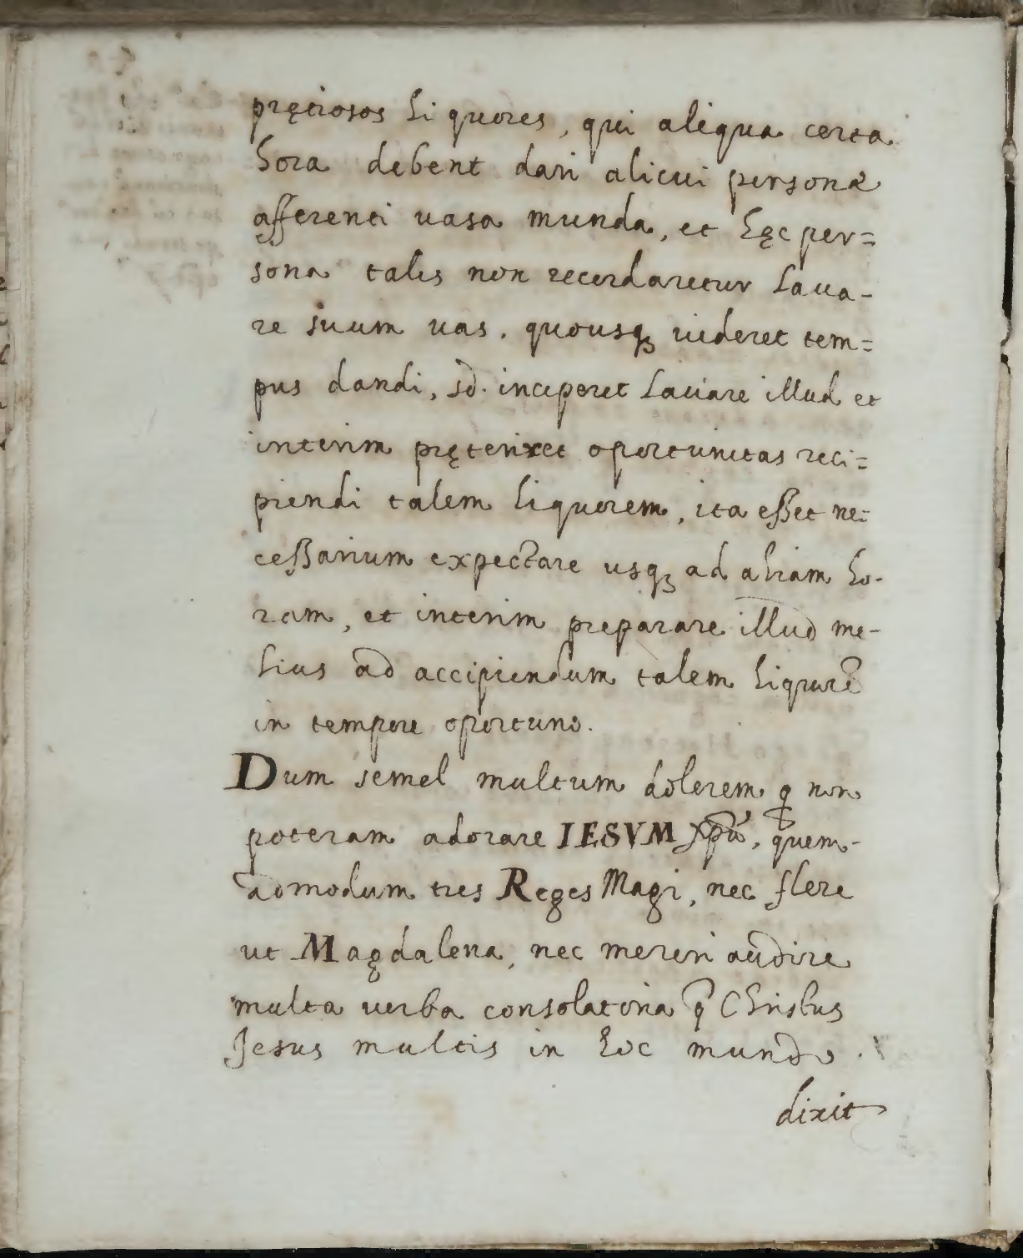 pręciosos liquores, qui aliqua certa
hora debent dari alicui personæ
afferenti uasa munda, et hęc per=
sona talis non recordaretur laua-
re suum uas, quousq; uideret tem=
pus dandi, sd. inciperet lauare illud et
interim pręteriret oportunitas reci=
piendi talem liquorem, ita esset ne=
cessarium expectare usq; ad aliam ho-
ram, et interim preparare illud me-
lius ad accipiendum talem liquorē
in tempore oportuno.
Dum semel multum dolerem q̄ non
poteram adorare IESVM xp̄ū, quem-
admodum tres Reges Magi, nec flere
ut Magdalena, nec mereri audire
multa uerba consolatoria q̄ Christus
Jesus multis in hoc mundo.
dixit